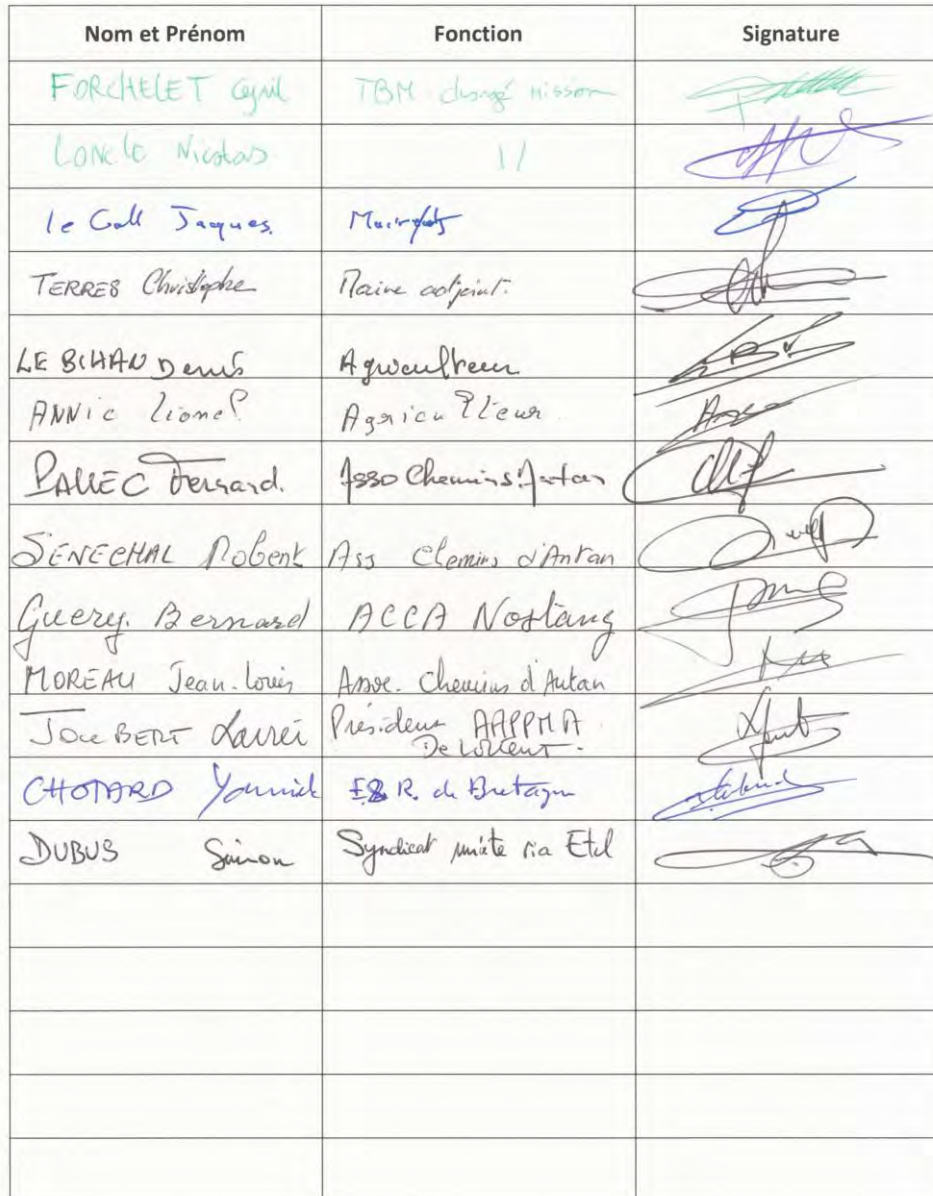 Nom et Prénom Fonction Signature
FORCHELET Cyril TBM chargé mission
LONCLE Nicolas //
le Gall Jacques.
TERRES Christophe Maire adjoint.
LE BIHAN Denis Agriculteur
ANNIC Lionel Agriculteur
PALLEC Fernand. Asso Chemins Antan
SENECHAL Robert Ass Chemins d'Antan
Guery. Bernard ACCA Nostang
MOREAU Jean-Louis Assoc. Chemins d'Antan
JOUBERT Président AAPPMA
De Lorient -
CHOTARD Yannick R. de Bretagne
DUBUS Simon Syndicat mixte ria Etel